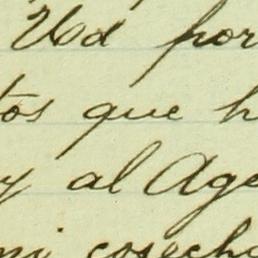 Ud por
tos que h
y al Age
mi cosecha